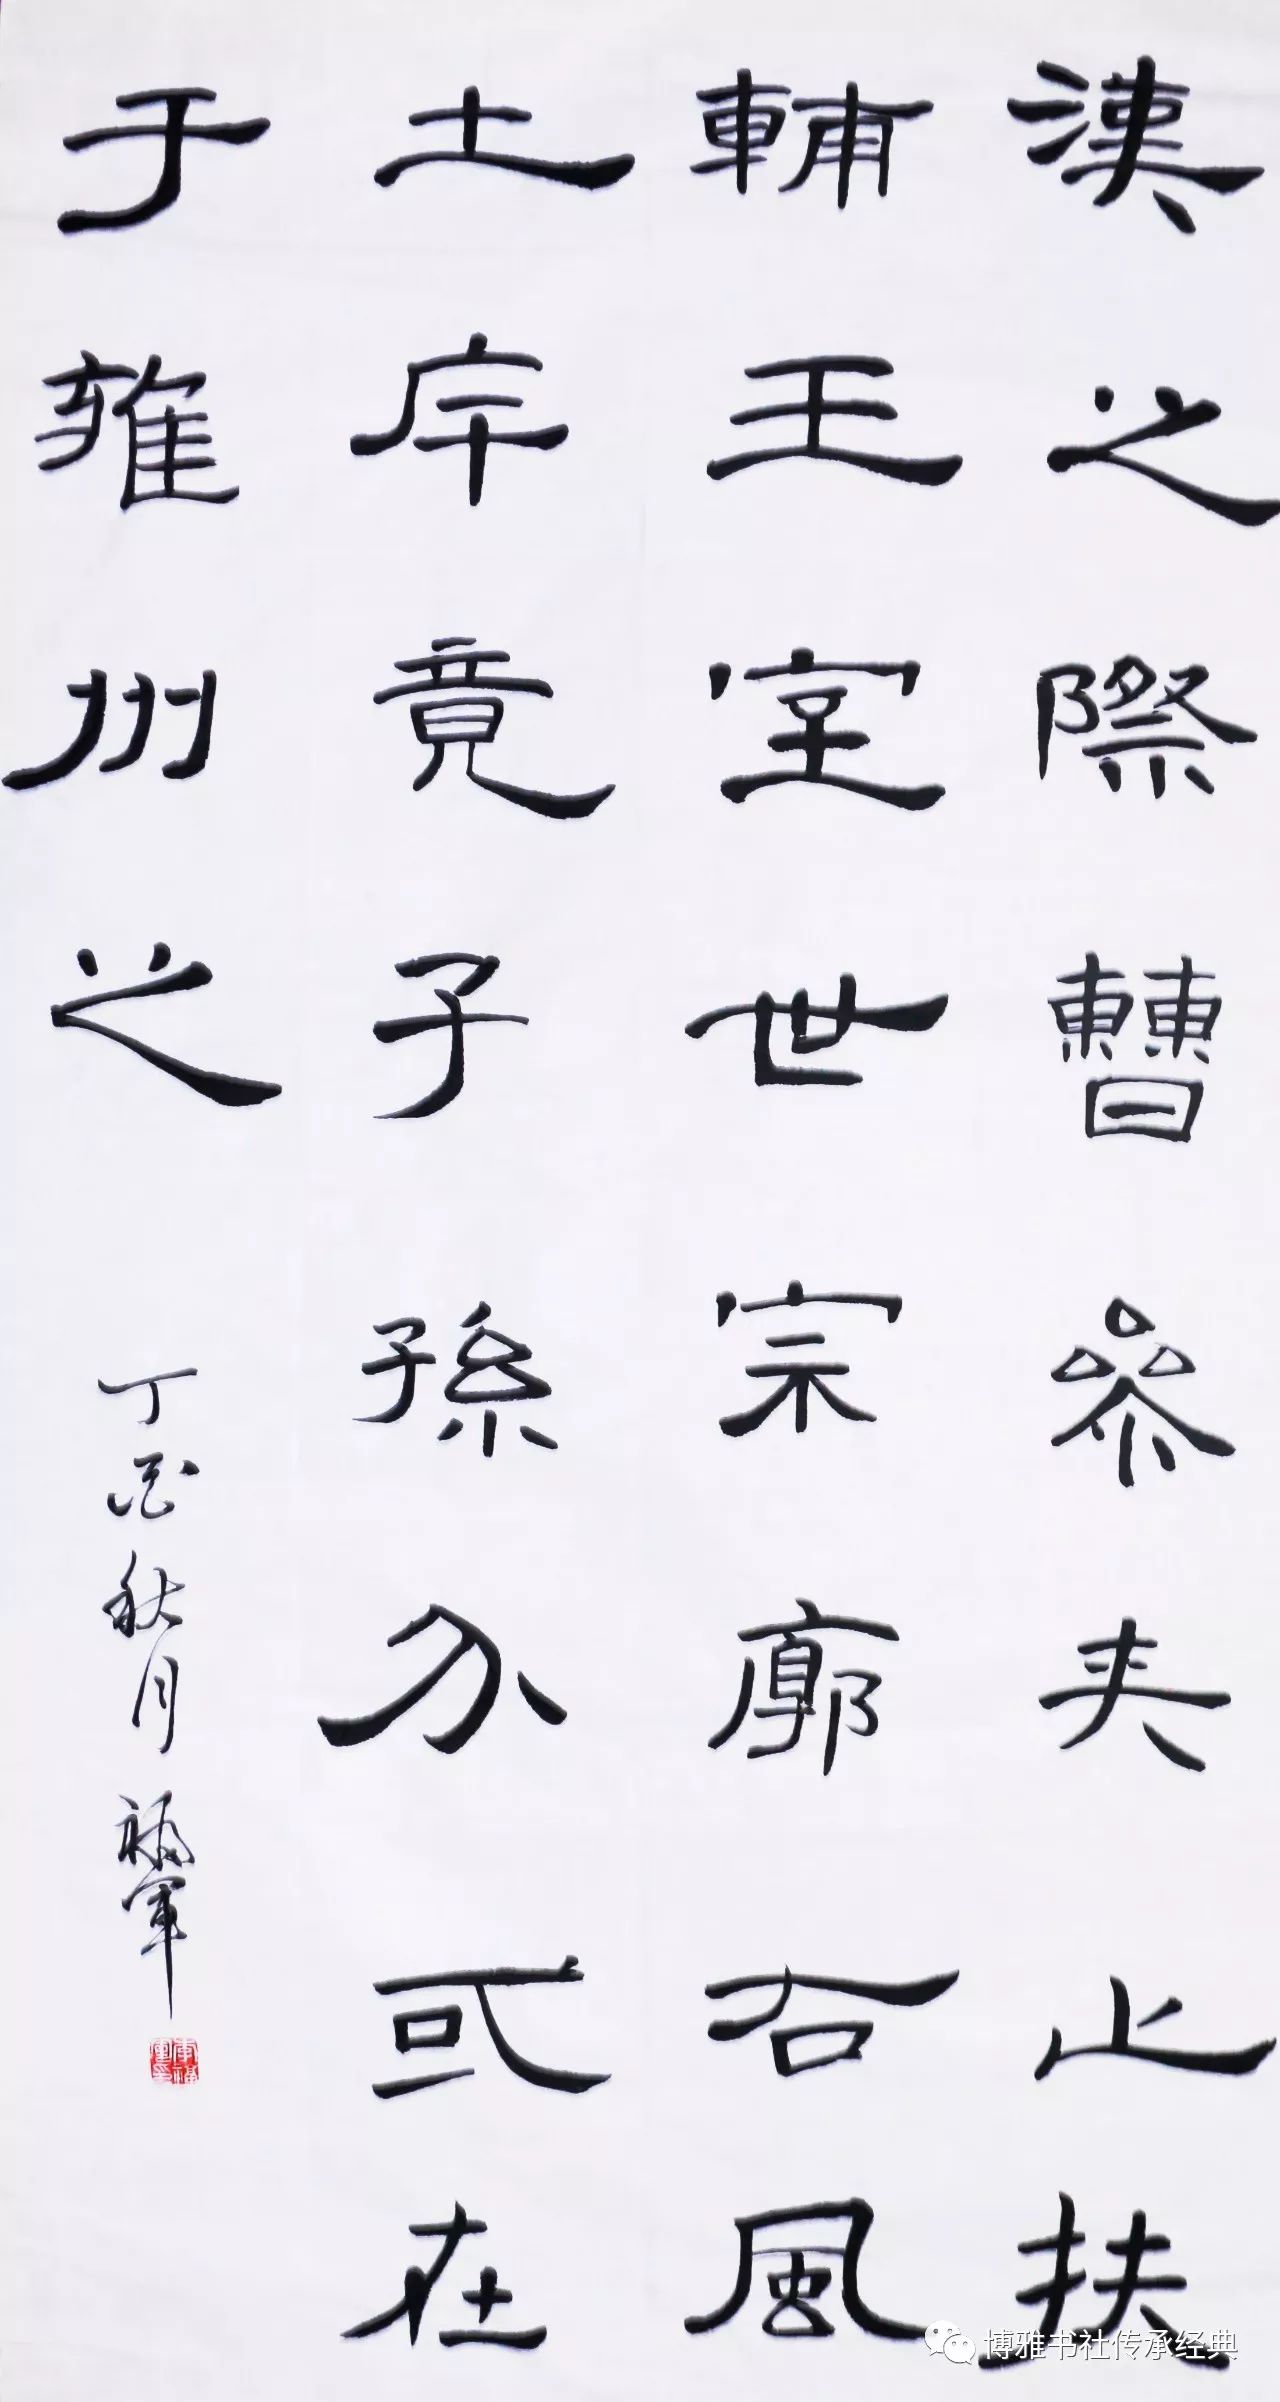 漢之際曹參夾止扶
輔王室世宗廓右風
土斥竟子孫分或在
于雍州之
丁酉秋月福軍
博雅书社传承经典